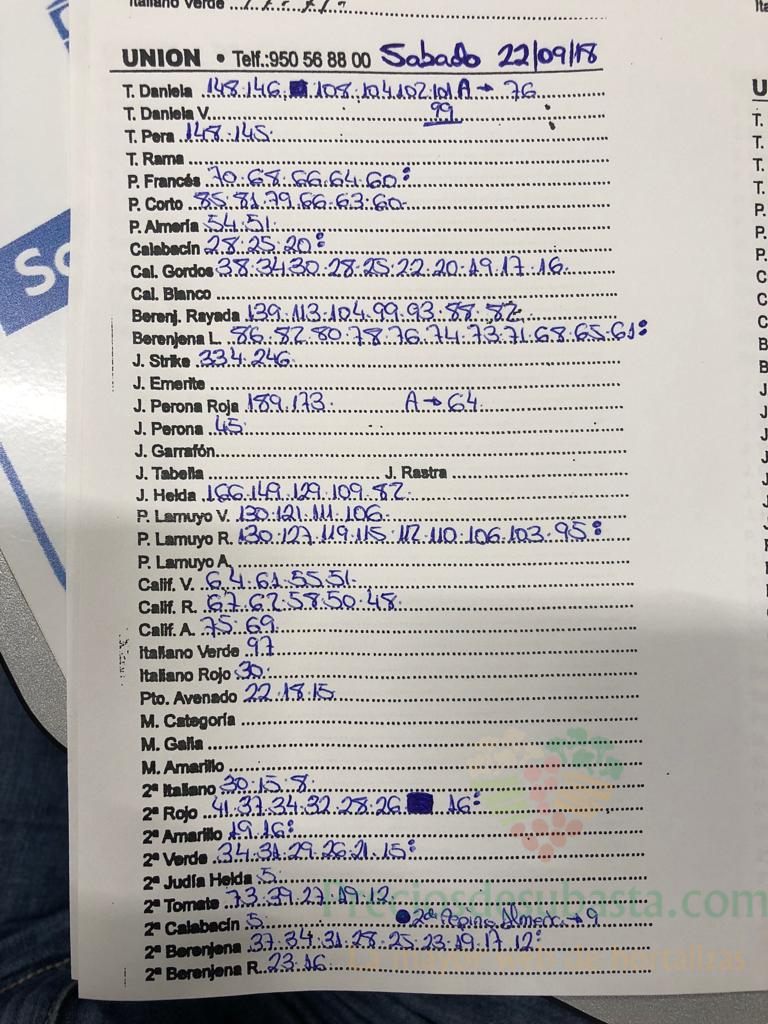 Italiano Verde
UNION • Telf.:950 56 88 00 Sabado 22/09/18
T. Daniela 148.146. 108.104.102.101 A → 76
T. Daniela V. 99
T. Pera 148.145.
T. Rama
P. Francés 70.68.66.64.60:
P. Corto 85.81.79.66.63.60.
P. Almería 54.51.
Calabacín 28.25.20:
Cal. Gordos 38.34.30.28.25.22.20.19.17.16.
Cal. Blanco
Berenj. Rayada 139.113.104.99.93.88.82.
Berenjena L. 86.82.80.78.76.74.73.71.68.65.61:
J. Strike 334.246.
J. Emerite
J. Perona Roja 189.173. A → 64.
J. Perona 45.
J. Garrafón
J. Tabella J. Rastra
J. Helda 166.149.129.109.82.
P. Lamuyo V. 130.121.111.106.
P. Lamuyo R. 130.127.119.115.112.110.106.103.95:
P. Lamuyo A.
Calif. V. 64.61.55.51.
Calif. R. 67.62.58.50.48.
Calif. A. 75.69.
Italiano Verde 97
Italiano Rojo 30.
Pto. Avenado 22.18.15.
M. Categoría
M. Galia
M. Amarillo
2ª Italiano 30.15.8.
2ª Rojo 41.37.34.32.28.26 16:
2ª Amarillo 19.16:
2ª Verde 34.31.29.26.21.15:
2ª Judía Helda 5.
2ª Tomate 73.39.27.19.12.
Preciosdesubasta.com
2ª Calabacín 5. → 9
2ª Berenjena 37.34.31.28.25.23.19.17.12:
2ª Berenjena R. 23.16